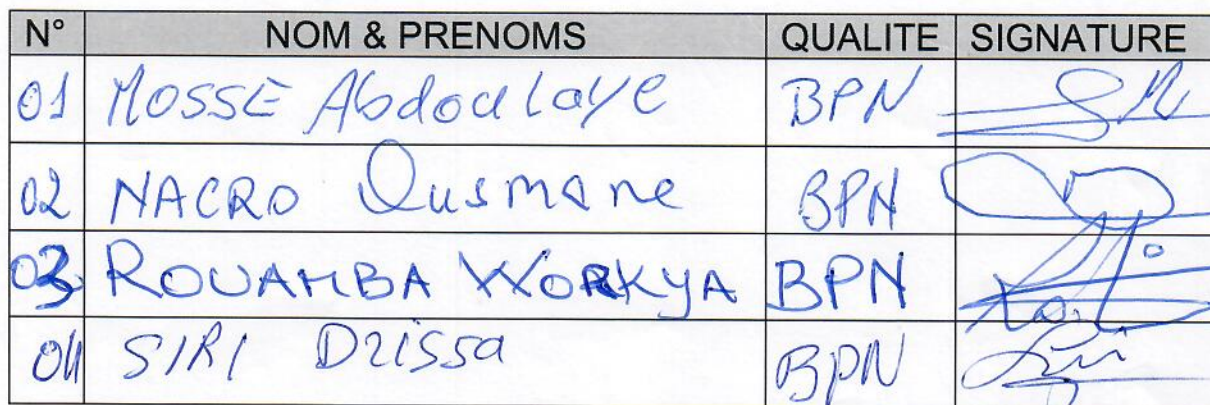 N° NOM & PRENOMS QUALITE SIGNATURE
01 MOSSE Abdoulaye BPN
02 NACRO Ousmane BPN
03 ROUAMBA WORKYA BPN
04 SIRI Drissa BPN